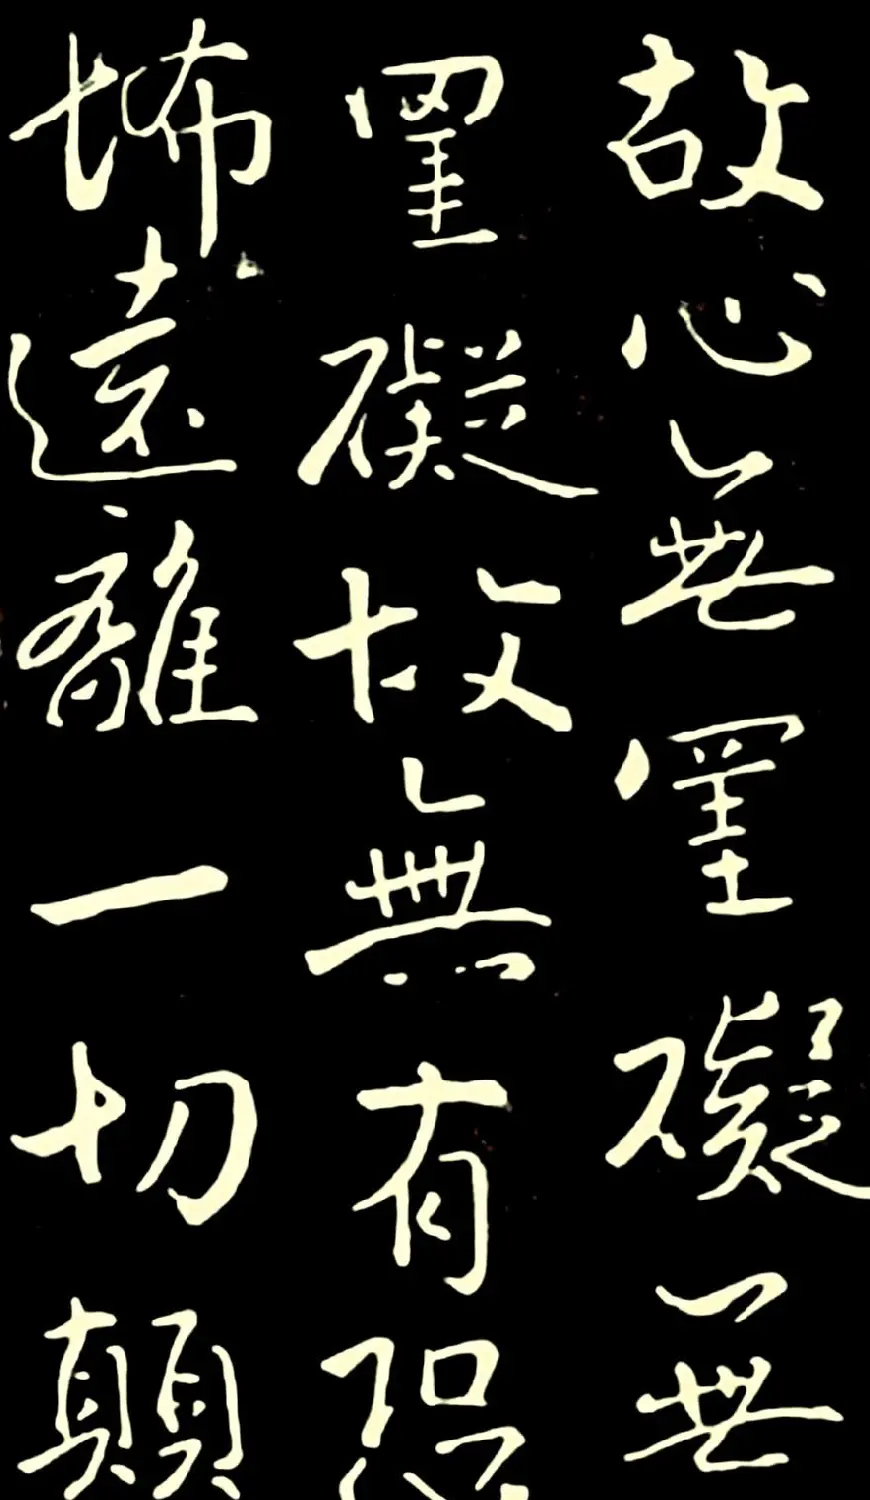 故心無罣礙無
罣礙故無有恐
怖遠離一切顛